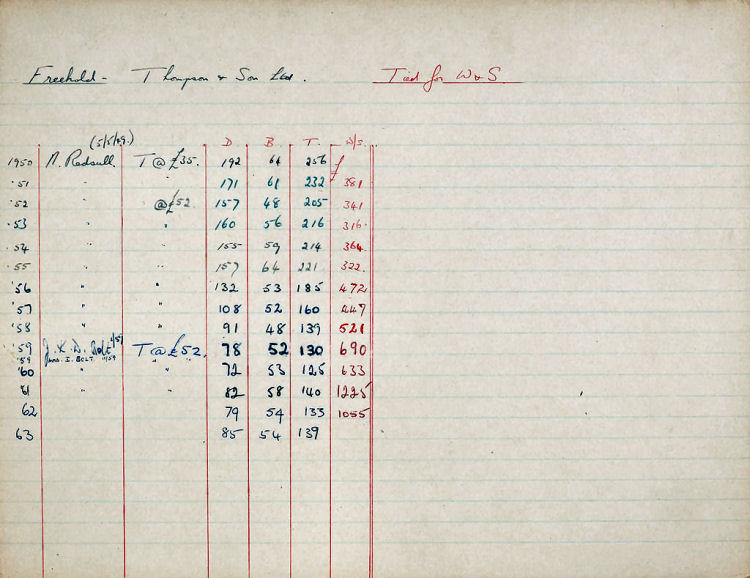 Freehold - Thompson & Son Ltd. Tied for W & S.
(5/5/49.) D. B. T. W/S.
1950 N. Redsull. T @ £35. 192 64 256 £
'51 " 171 61 232 381
'52 " @ £52 157 48 205 341
'53 " " 160 56 216 316
'54 " 155 59 214 364
'55 " 157 64 221 322.
'56 " " 132 53 185 472
'57 " " 108 52 160 447
'58 " " 91 48 139 521
'59 J. K. D. Bolt T @ £52. 78 52 130 690
'59 I. BOLT " "
'60 " " 72 53 125 633
61 " " 82 58 140 1225
62 79 54 133 1055
63 85 54 139